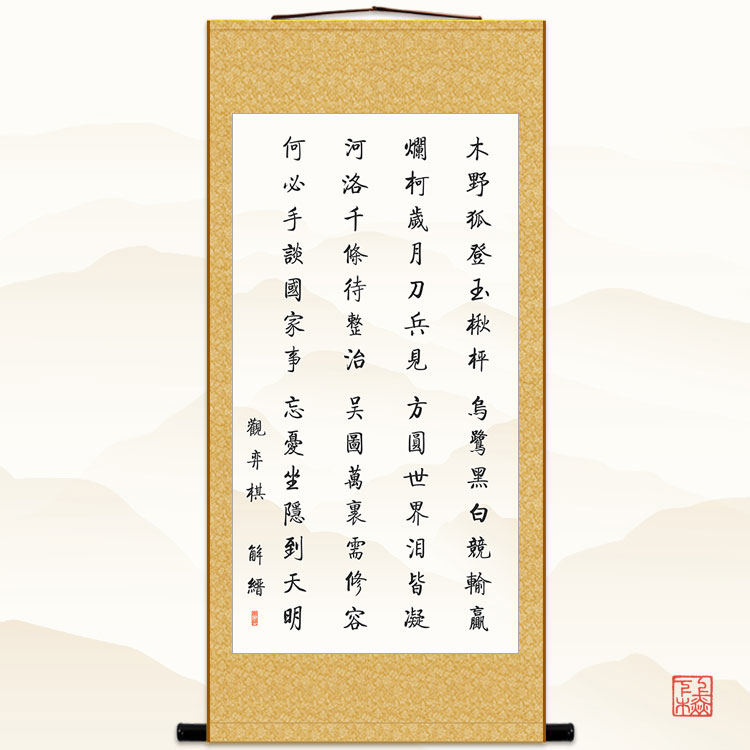 木野狐登玉楸枰 烏鷺黑白競輸贏
爛柯歲月刀兵見 方圓世界泪皆凝
河洛千條待整治 吴圖萬裏需修容
何必手談國家事 忘憂坐隱到天明
觀弈棋 解縉